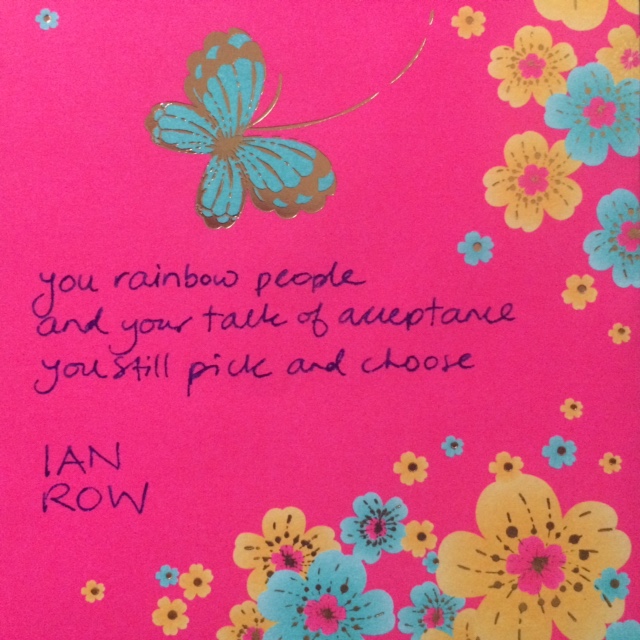 you rainbow people
and your talk of acceptance
you still pick and choose
IAN
ROW